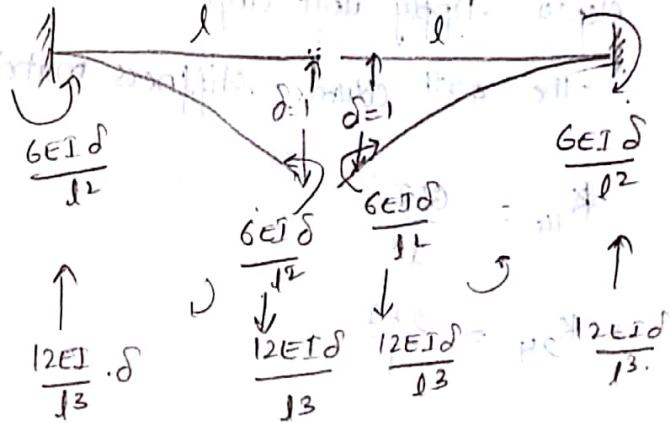 l l
δ=1 δ=1
6EIδ/l² 6EIδ/l² 6EIδ/l² 6EIδ/l²
12EI/l³ .δ 12EIδ/l³ 12EIδ/l³ 12EIδ/l³.